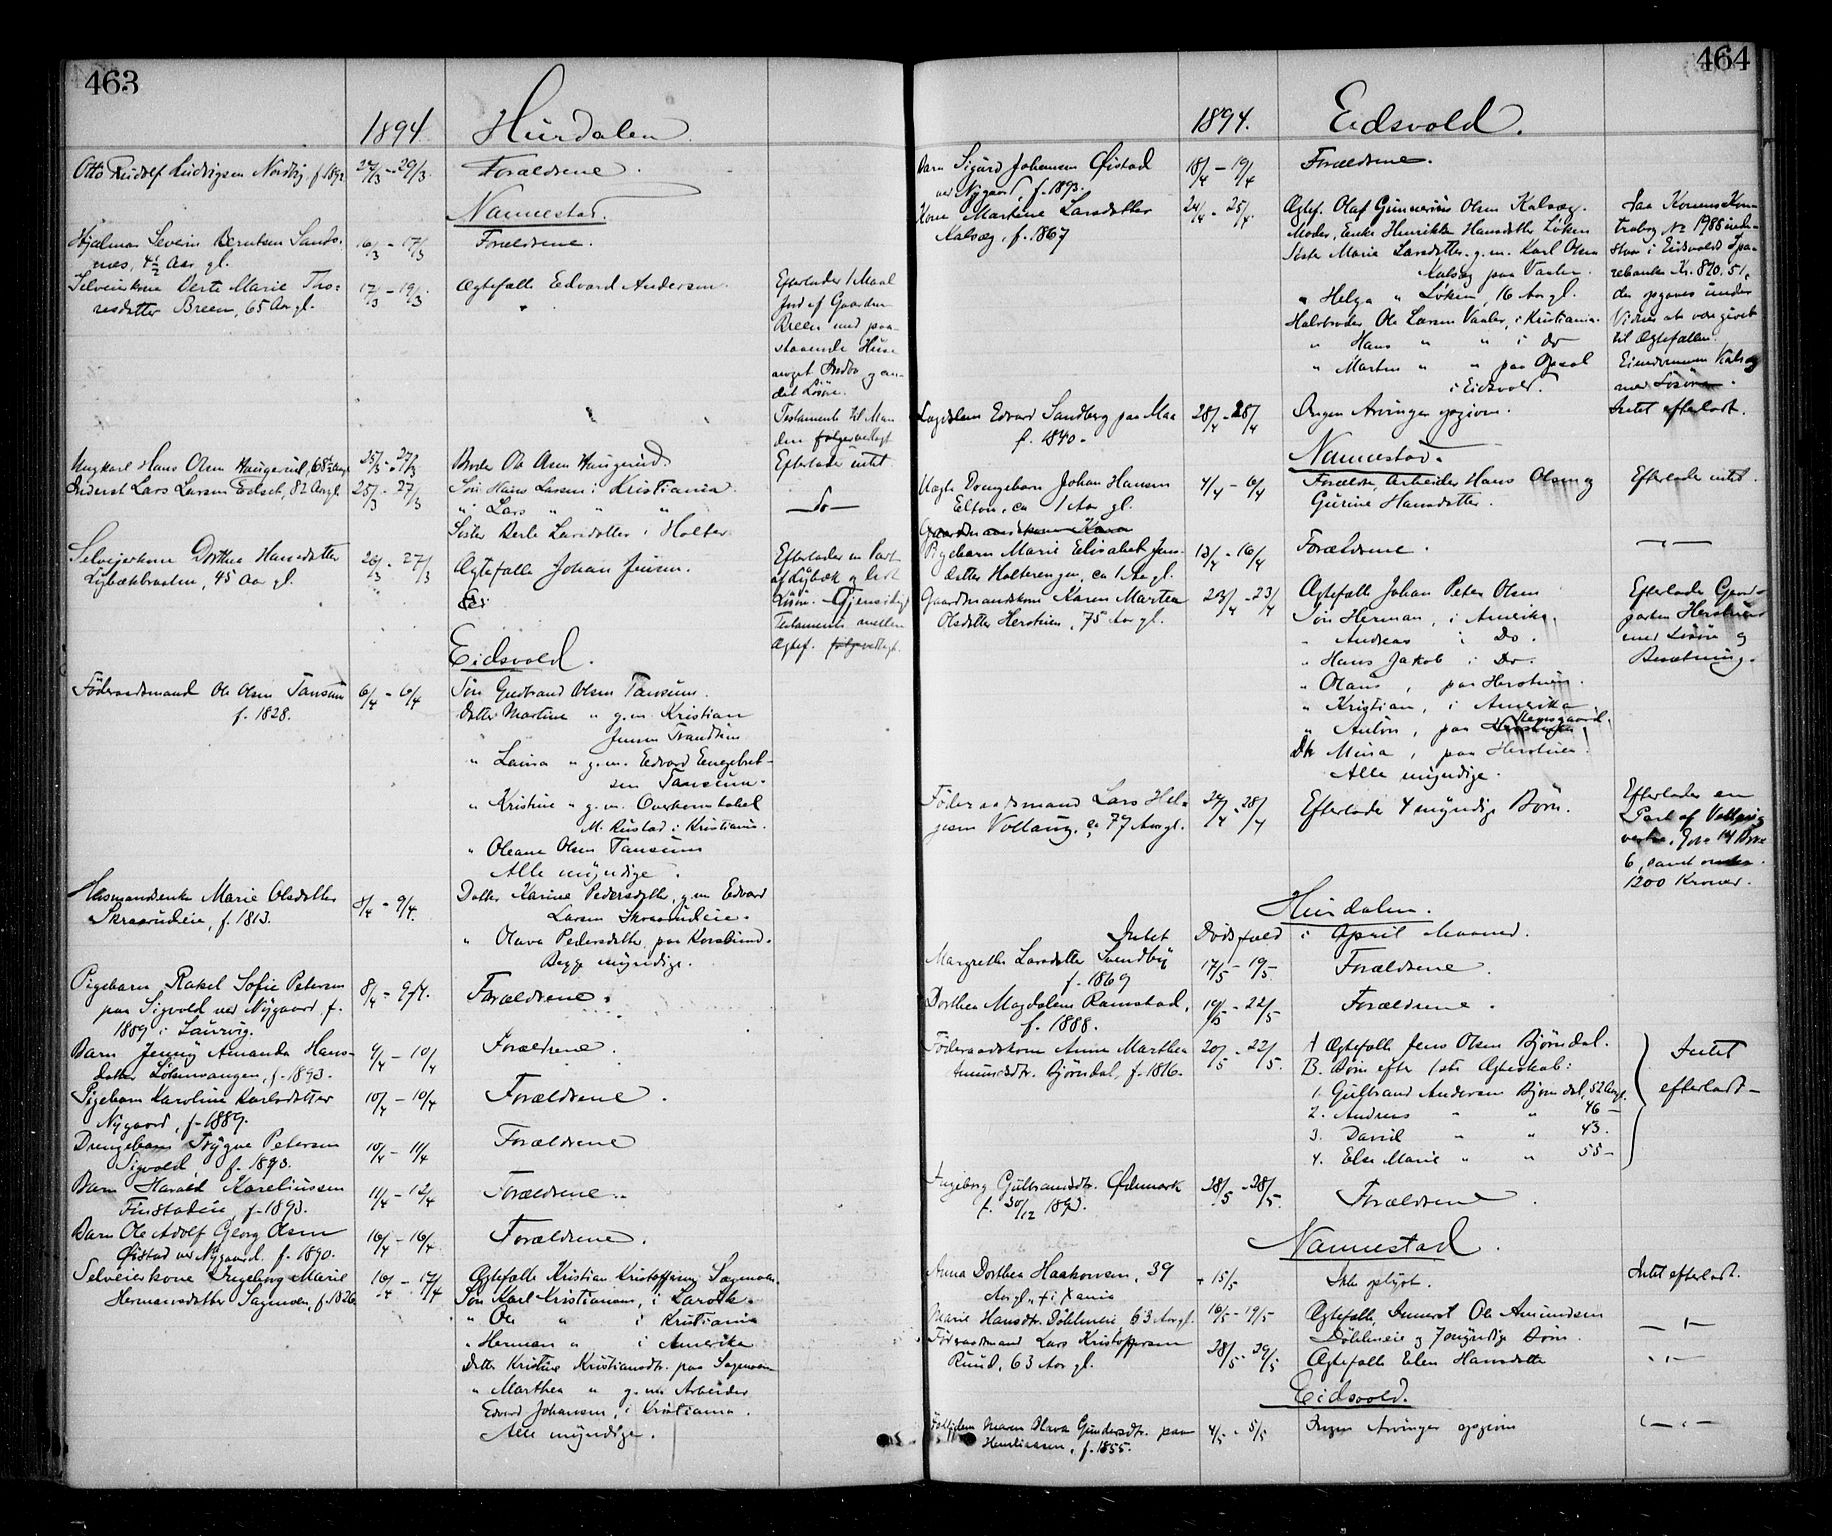 463
1894. Hurdalen.
Otto Rudolf Ludvigsen Nordby f. 1892 27/3 - 29/3. Forældrene.
Nannestad.
Hjalmar Severin Berntsen Sands-
næs, 4½ Aar gl. 16/3 - 17/3 Forældrene.
Selveierkone Berte Marie Tho-
resdatter Breen, 65 Aar gl. 17/3 - 19/3 Ægtefælle Edvard Andersen.
Efterlader 1 Maal
Jord af Gaarden
Breen med paa-
staaende Huse
noget Indbo og an-
det Løsøre.
Testamente til Man-
den følger vedlagt
Ungkarl Hans Olsen Haugerud, 68½ Aar gl. 25/3 - 27/3 Broder Ole Olsen Haugerud. Efterlader intet
Inderst Lars Larsen Eilset, 82 Aar gl. 25/3 - 27/3 Søn Hans Larsen i Kristiania. - Do -
" Lars " " "
Søster Berte Larsdatter i Holter
Selveierkone Dorthea Hansdatter
Lybækbraaten, 45 Aar gl. 26/3 - 27/3 Ægtefælle Johan Jensen.
Efterlader en Part
af Lybæk og lidt
Løsøre. Gjensidigt
Testamente mellem
Ægtef. følger vedlagt.
Eidsvold.
Föderaadsmand Ole Olsen Tansum
f. 1828. 6/4 - 6/4 Søn Gudbrand Olsen Tansum.
Datter Martine " g.m. Kristian
Jensen Trandsen
" Laura " g.m. Edvard Engebret-
sen Tansum.
" Kristine " g.m. Overkonstabel
M. Rustad i Kristiania.
" Oleane Olsen Tansum
Alle myndige.
Husmandsenke Marie Olsdatter
Skraarudeie, f. 1813. 8/4 - 9/4. Datter Karine Pedersdatter, g.m. Edvard
Larsen Skraarudeie.
" Olava Pedersdatter paa Korslund.
Begge myndige.
Pigebarn Rakel Sofie Petersen
paa Sigvold ved Nygaard f.
1889 i Laurvig. 8/4 - 9/4. Forældrene.
Barn Jenny Amanda Hans-
datter Løkenvangen, f. 1893. 9/4 - 10/4 Forældrene.
Pigebarn Karoline Karlsdatter
Nygaard, f. 1889. 10/4 - 10/4 Forældrene.
Drengebarn Trygve Petersen
Sigvold, f. 1893. 10/4 - 11/4 Forældrene
Barn Harald Kareliussen
Finstadeie, f. 1893. 11/4 - 12/4 Forældrene.
Barn Ole Adolf Georg Olsen
Øistad ved Nygaard. f. 1890. 16/4 - 16/4 Forældrene.
Selveierkone Ingeborg Marie
Hermansdatter Sagmoen, f. 1826. 16/4 - 17/4 Ægtefælle Kristian Kristoffersen Sagmoen.
Søn Karl Kristiansen, i Larvik.
" Ole " i Kristiania
" Herman " i Amerika
Datter Kristine Kristiansdtr. paa Sagmoen
" Marthea " g.m. Arbeider
Edvard Johansen, i Kristiania.
Alle myndige.
464
1894. Eidsvold.
Barn Sigurd Johansen Øistad
ved Nygaard, f. 1893. 18/4 - 19/4 Forældrene.
Kone Martine Larsdatter
Kalsæg, f. 1867 24/4 - 25/4. Ægtef. Olaf Gunnerius Olsen Kalsæg.
Moder, Enke Henrikke Hansdatter Løken
Søster Marie Larsdatter g.m. Karl Olsen
Kalsæg paa Vaaler.
" Helga " Løken, 16 Aar gl.
Halvbroder, Ole Larsen Vaaler, i Kristiania.
" Hans " " i do
" Morten " " paa Opsal
i Eidsvold.
Paa Konens Kon-
trabog No 1988 inde-
staar i Eidsvolds Spa-
rebanken Kr. 870,51,
der opgives under
Vidner at være givet
til Ægtefællen.
Eiendommen Kalsæg
med Løsøre.
Lægdslem Edvard Sandberg paa Maa
f. 1840. 28/4 - 28/4 Ingen Arvinger opgiven. Intet efterladt.
Nannestad.
Uægte Drengebarn Johan Hansen
Elton, ca 1 Aar gl. 4/4 - 6/4 Forældre, Arbeider Hans Olsen og
Gurine Hansdatter. Efterlader intet.
Gaardmandskone Karen
Pigebarn Marie Elisabet Jens-
datter Holterengen, ca 1 Aar gl. 13/4 - 16/4 Forældrene. — " —
Gaardmandskone Karen Martea
Olsdatter Herstuen, 75 Aar gl. 23/4 - 23/4 Ægtefælle Johan Peter Olsen
Søn Herman, i Amerika.
" Andreas i Do.
" Hans Jakob i Do.
" Olaus, paa Herstuen.
" Kristian, i Amerika
" Anton, paa
Dtr. Mina, paa Herstuen.
Alle myndige.
Efterlader Gaard-
parten Herstuen
med Løsøre og
Besætning.
Föderaadsmand Lars Hel-
gesen Vollaug, ca 77 Aar gl. 27/4 - 28/4 Efterlader 4 myndige Børn.
Efterlader en
Part af
14
6, samt
1200 Kroner.
Hurdalen.
Intet Dødsfald i April Maaned.
Margrethe Larsdatter Svendby
f. 1869 17/5 - 19/5 Forældrene.
Dorthea Magdalene Ramstad,
f. 1888. 19/5 - 22/5 Forældrene.
Föderaadskone Anne Marthea
Amundsdtr. Bjørndal, f. 1816. 20/5 - 22/5. A Ægtefælle Jens Olsen Bjørndal.
B. Børn efter 1ste Ægteskab:
1. Gulbrand Andersen Bjørndal, 52 Aar gl.
2. Andreas " " 46 —
3. David " " 43.
4. Else Marie " " 55 —
Intet
efterladt —
Ingeborg Gulbrandsdtr. Ødemark
f. 30/12 1893. 28/5 - 28/5. Forældrene.
Nannestad.
Anna Dorthea Haakonsen, 39
Aar gl., + i Xania + 15/5 Ikke oplyst. Intet efterladt.
Marie Hansdtr. Döhleneie, 63 Aar gl. 16/5 - 19/5 Ægtefælle, Inderst Ole Amundsen
Döhleneie og 7 myndige Børn. — " —
Föderaadsmand Lars Kristoffersen
Ruud, 63 Aar gl. 28/5 - 29/5 Ægtefælle Elen Hansdatter — " —
Eidsvold.
Fattiglem Maren Olava Gundersdtr. paa
f. 1855. 4/5 - 5/5 Ingen Arvinger opgiven — " —